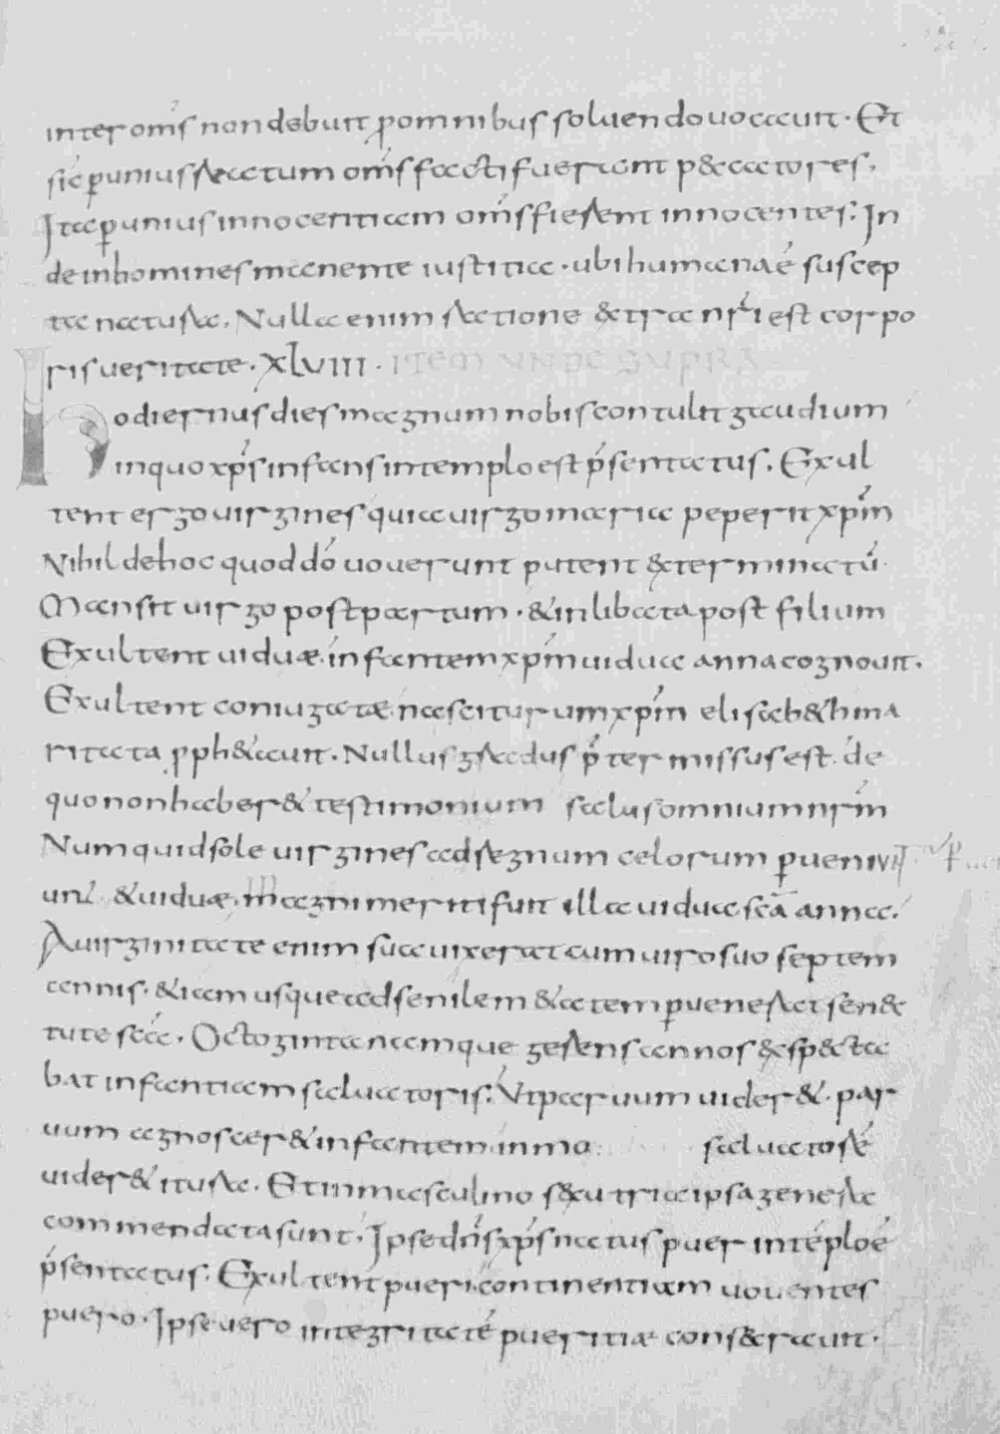 inter om̅s non debuit p̲ omnibus soluendo uocauit. Et
sic p̲ unius reatum om̅s facti fuerant peccatores,
Ita p̲ unius innocentiam om̅s fierent innocentes: In
de in homines manente iustitia. ubi humanae suscep
ta natura, Nulla enim ratione & tra nr̅i est corpo
ris ueritate. XLVIII. ITEM UNDE SUPRA
Hodiernus dies magnum nobis contulit gaudium
in quo xp̅s infans in templo est p̅sentatus. Exul
tent ergo uirgines quia uirgo maria peperit xp̅m
Nihil de hoc quod dō uouerunt putent & terminatū
Mansit uirgo post partum. & inlibata post filium
Exultent uiduæ. infantem xp̅m uidua anna cognouit.
Exultent coniugatæ. nasciturum xp̅m elisabeth ma
ritata pph&auit. Nullus gradus p̅termissus est. de
quo non haber& testimonium salus omnium nr̅m
Numquid sole uirgines ad regnum celorum p̲ueni
unt & uiduæ. magni meriti fuit illa uidua sc̅a anna.
A uirginitate enim sua uixerat cum uiro suo septem
annis. & iam usque ad senilem &atem p̲uenerat sen&c
tute sc̅a. Octoginta namque gerens annos &sp&cta
bat infantiam saluatoris: Ut paruum uider&. par
uum agnoscer& infantem in ma saluatorē
uider& itura. Et in masculino s&u tria ipsa genera
commendata sunt. Ipse dn̅s xp̅s natus puer in tēplo ē
p̅sentatus. Exultent pueri continentiam uouentes
puero. Ipse uero integritatē pueritiæ consecrauit.